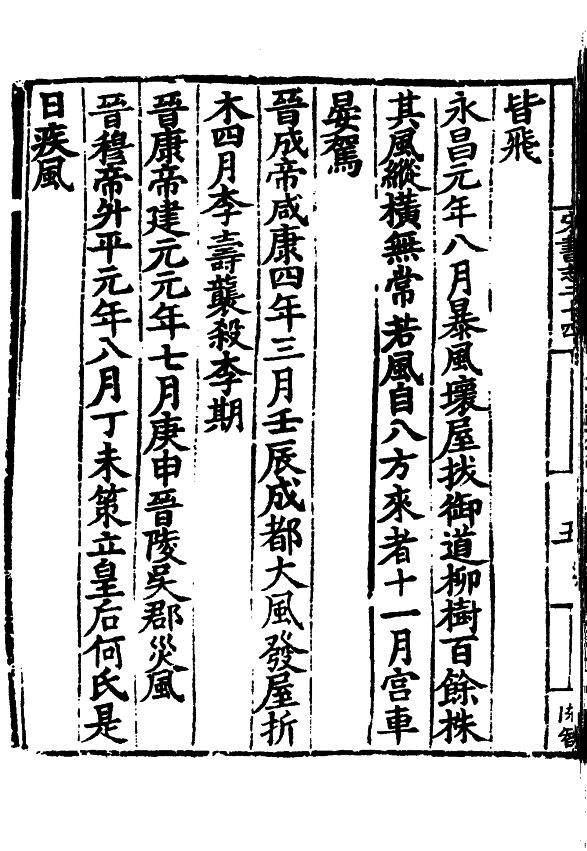 宋書志二十四
五
皆飛
永昌元年八月暴風壞屋拔御道柳樹百餘株
其風縱橫無常若風自八方來者十一月宮車
晏駕
晉成帝咸康四年三月壬辰成都大風發屋折
木四月李壽襲殺李期
晉康帝建元元年七月庚申晉陵吳郡災風
晉穆帝升平元年八月丁未策立皇后何氏是
日疾風